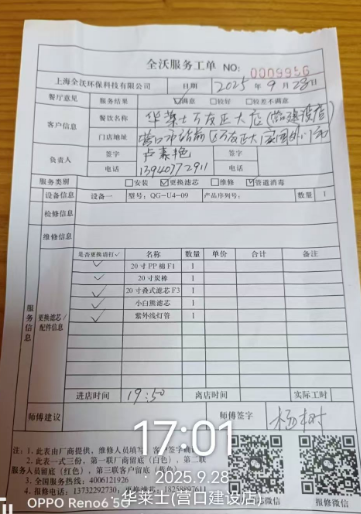 全沃服务工单 NO: 0009956
上海全沃环保科技有限公司 日期 2025年9月28日
餐厅意见 服务结果 ☑满意 □较好 □较差不满意
客户信息 餐饮名称 华莱士万友正大店(营建设店)
门店地址 营口市站前区
负责人 签字 签字
电话 13940772911 电话
服务类别 □安装 ☑更换滤芯 □维修 ☑管道消毒
设备信息 设备一 型号: QG-U4-09 产品序列号: 数量 1
检修信息
维修信息
服务信息 更换滤芯/配件信息
是否更换请打✓ 名称 数量 单价 合计 备注
✓ 20寸PP棉F1
✓ 20寸炭棒
✓ 20寸叠式滤芯F3
✓ 小白鹅滤芯
✓ 紫外线灯管
进店时间 19:50 离店时间 实际工时
师傅建议 师傅签字 杨树
注: 1、此表由厂商提供, 维修人员填写
2、此表一式三份, 第一联厂商留底(白色), 第二联
服务人员留底(红色), 第三联客户留底
3、全国服务热线: 4006121926
4、报修电话: 13732292730,
17:01
2025.9.28
华莱士(营口建设店)
OPPO Reno6 5G